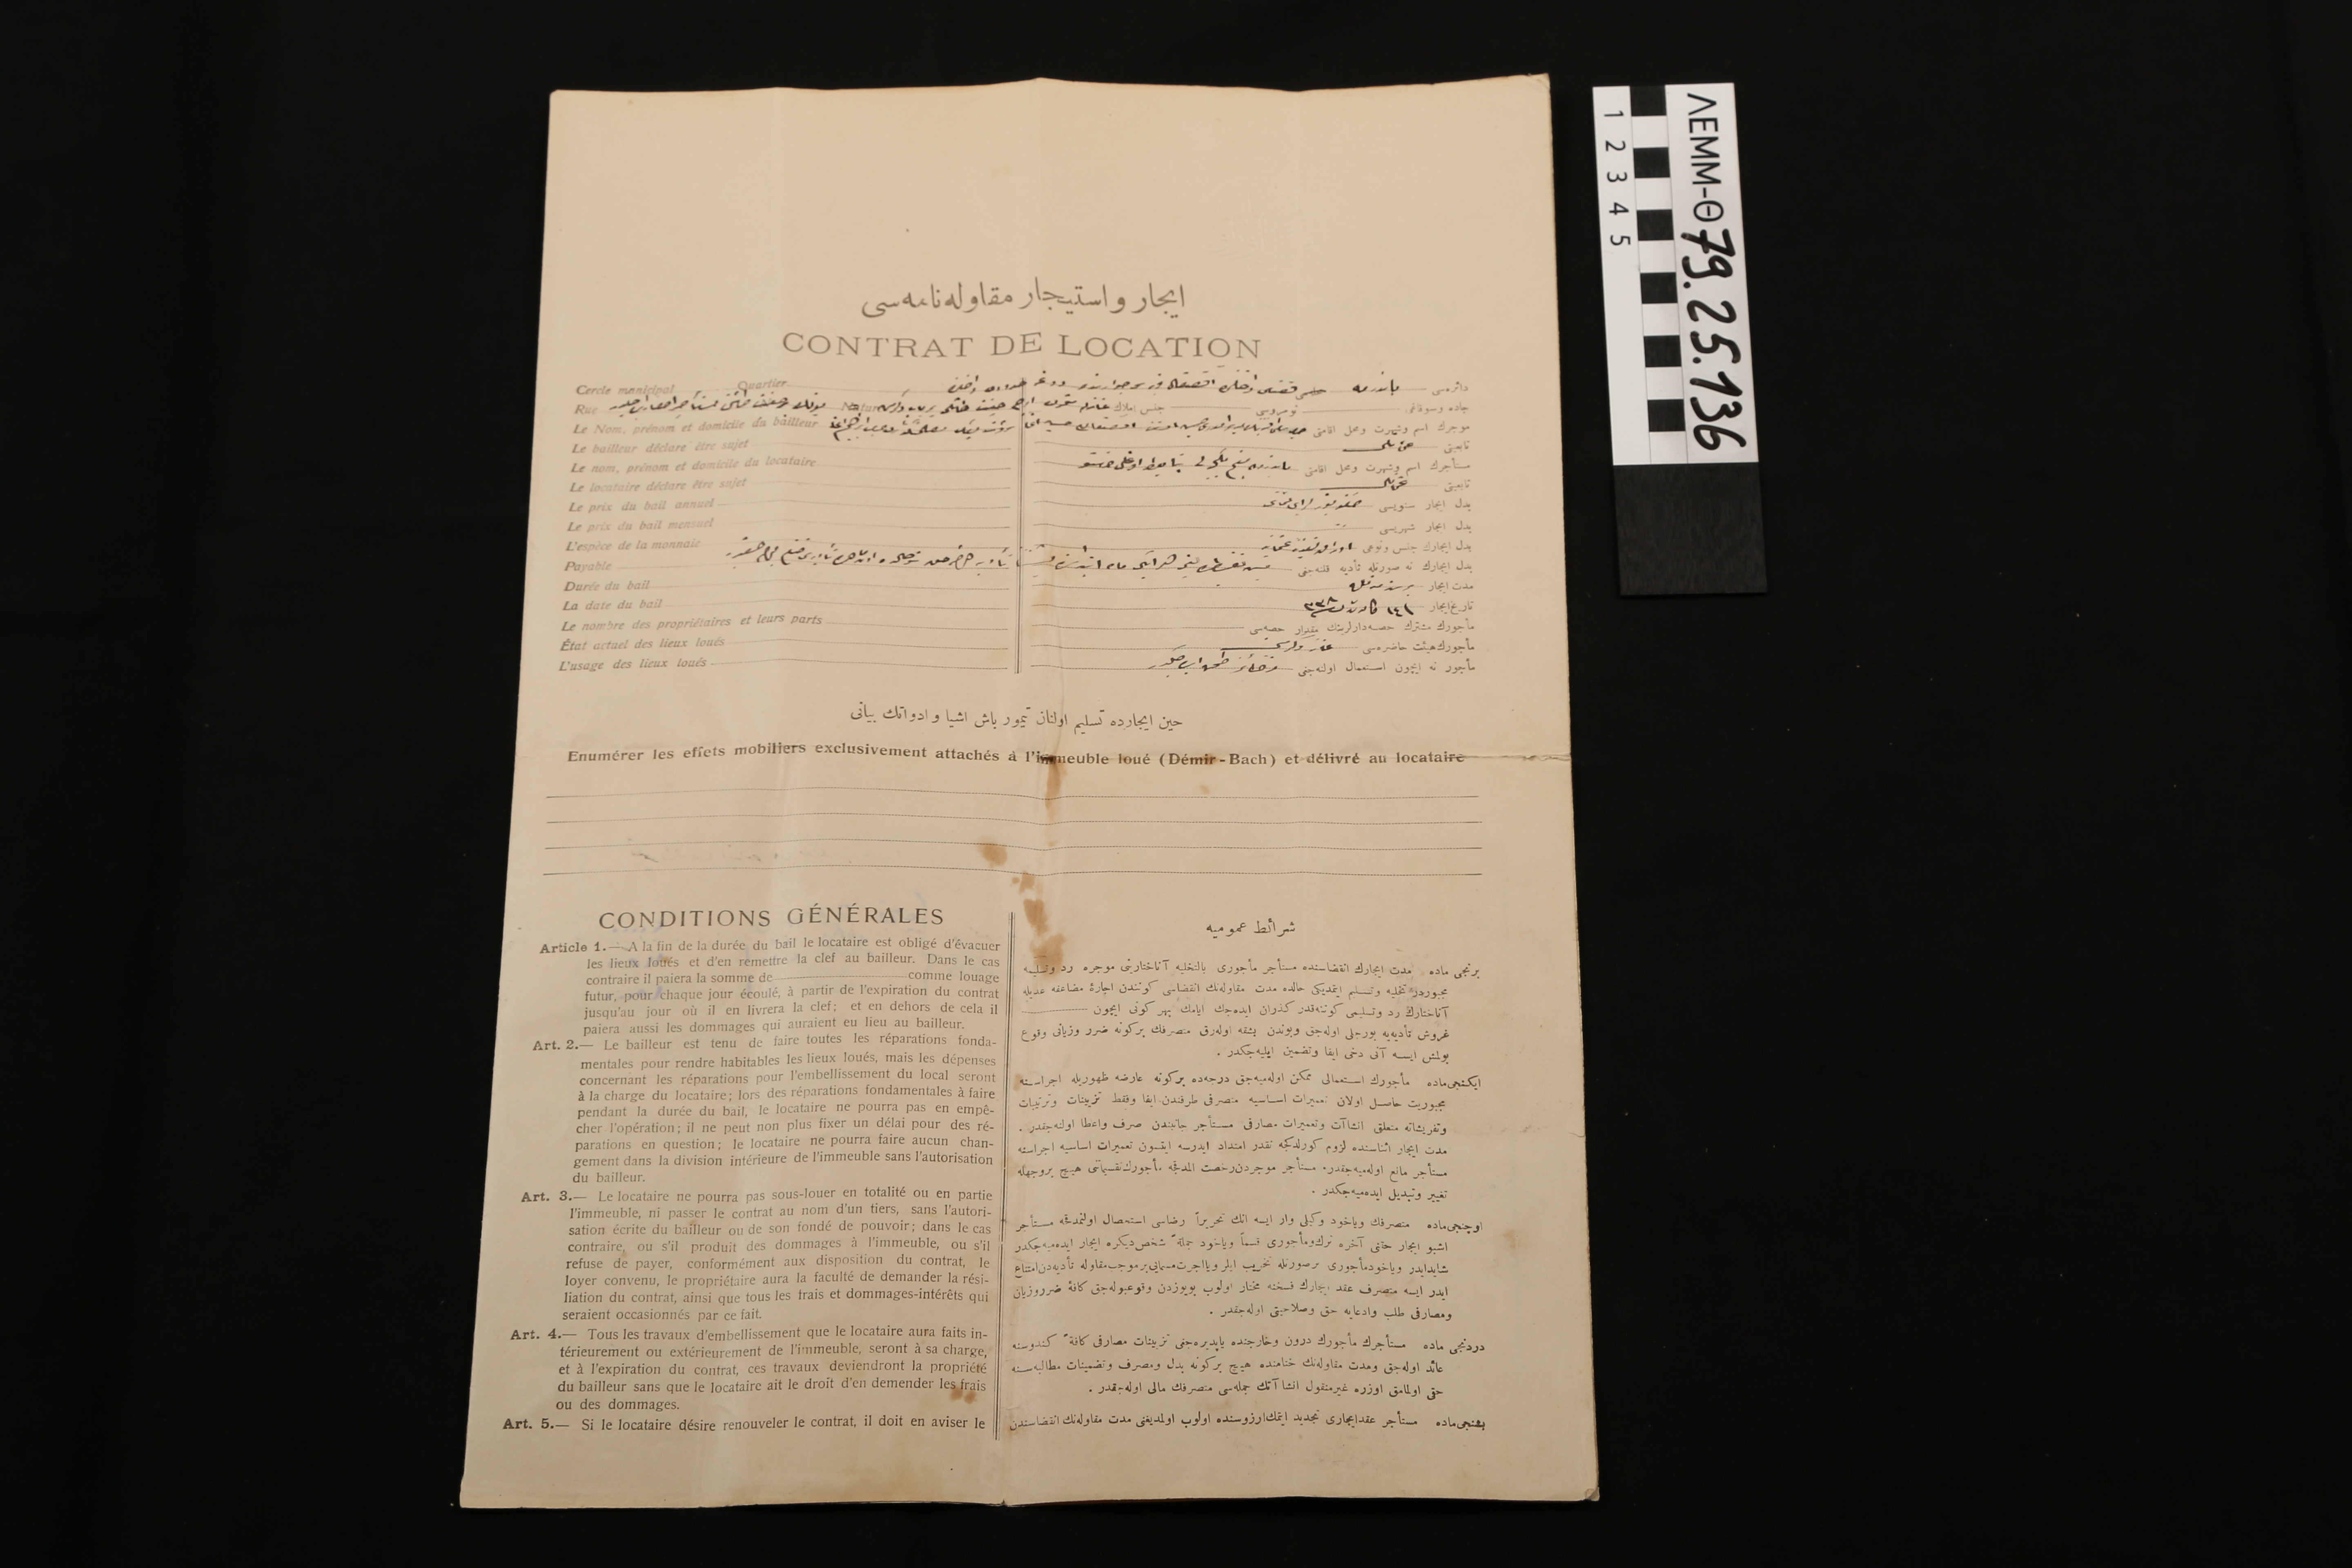 ايجار و استيجار مقاوله‌نامه‌سى
CONTRAT DE LOCATION
Cercle municipal Quartier
دائره‌سى
Rue Nature
جاده وسوقاقى نومروسى جنس املاك
Le Nom, prénom et domicile du bailleur
موجرك اسم وشهرت ومحل اقامتى
Le bailleur déclare être sujet
تابعيتى
Le nom, prénom et domicile du locataire
مستأجرك اسم وشهرت ومحل اقامتى
Le locataire déclare être sujet
تابعيتى
Le prix du bail annuel
بدل ايجار سنويسى
Le prix du bail mensuel
بدل ايجار شهريسى
L'espèce de la monnaie
بدل ايجارك جنس ونوعى
Payable
بدل ايجارك نه صورتله تأديه قلنه‌جغى
Durée du bail
مدت ايجار
La date du bail
تاريخ ايجار
Le nombre des propriétaires et leurs parts
مأجورك مشترك حصه‌دارلرينك مقدار حصه‌سى
État actuel des lieux loués
مأجورك هيئت حاضره‌سى
L'usage des lieux loués
مأجور نه ايچون استعمال اولنه‌جغى
حين ايجارده تسليم اولنان تيمور باش اشيا و ادواتك بيانى
Enumérer les effets mobiliers exclusivement attachés à l'immeuble loué (Démir-Bach) et délivré au locataire
CONDITIONS GÉNÉRALES
Article 1.— A la fin de la durée du bail le locataire est obligé d'évacuer
les lieux loués et d'en remettre la clef au bailleur. Dans le cas
contraire il paiera la somme de comme louage
futur, pour chaque jour écoulé, à partir de l'expiration du contrat
jusqu'au jour où il en livrera la clef; et en dehors de cela il
paiera aussi les dommages qui auraient eu lieu au bailleur.
Art. 2.— Le bailleur est tenu de faire toutes les réparations fonda-
mentales pour rendre habitables les lieux loués, mais les dépenses
concernant les réparations pour l'embellissement du local seront
à la charge du locataire; lors des réparations fondamentales à faire
pendant la durée du bail, le locataire ne pourra pas en empê-
cher l'opération; il ne peut non plus fixer un délai pour des ré-
parations en question; le locataire ne pourra faire aucun chan-
gement dans la division intérieure de l'immeuble sans l'autorisation
du bailleur.
Art. 3.— Le locataire ne pourra pas sous-louer en totalité ou en partie
l'immeuble, ni passer le contrat au nom d'un tiers, sans l'autori-
sation écrite du bailleur ou de son fondé de pouvoir; dans le cas
contraire, ou s'il produit des dommages à l'immeuble, ou s'il
refuse de payer, conformément aux disposition du contrat, le
loyer convenu, le propriétaire aura la faculté de demander la rési-
liation du contrat, ainsi que tous les frais et dommages-intérêts qui
seraient occasionnés par ce fait.
Art. 4.— Tous les travaux d'embellissement que le locataire aura faits in-
térieurement ou extérieurement de l'immeuble, seront à sa charge,
et à l'expiration du contrat, ces travaux deviendront la propriété
du bailleur sans que le locataire ait le droit d'en demender les frais
ou des dommages.
Art. 5.— Si le locataire désire renouveler le contrat, il doit en aviser le
شرائط عموميه
برنجى ماده مدت ايجارك انقضاسنده مستأجر مأجورى بالتخليه آناختارينى موجره رد وتسليمه
مجبوردر تخليه وتسليم ايتمديكى حالده مدت مقاوله‌نك انقضاسى كونندن اجارۀ مضاعفه عديله
آناختارك رد وتسليمى كوننه‌قدر كذران ايده‌جك ايامك بهر كونى ايچون
غروش تأديه‌يه بورجلى اوله‌جق وبوندن بشقه اوله‌رق متصرفك بركونه ضرر وزيانى وقوع
بولمش ايسه آنى دخى ايفا وتضمين ايليه‌جكدر .
ايكنجى ماده مأجورك استعمالى ممكن اوله‌ميه‌جق درجه‌ده بركونه عارضه ظهوريله اجراسنه
مجبوريت حاصل اولان تعميرات اساسيه متصرفى طرفندن ايفا وفقط تزيينات وترتيبات
وتفريشاته متعلق انشاآت وتعميرات مصارفى مستأجر جانبندن صرف واعطا اولنه‌جقدر .
مدت ايجار اثناسنده لزوم كورلدكجه نقدر امتداد ايدرسه ايتسون تعميرات اساسيه اجراسنه
مستأجر مانع اوله‌ميه‌جقدر. مستأجر موجردن رخصت المدقجه مأجورك تقسيماتنى هيچ بروجهله
تغيير وتبديل ايده‌ميه‌جكدر .
اوچنجى ماده متصرفك وياخود وكيلى وار ايسه انك تحريراً رضاسى استحصال اولنمدقجه مستأجر
اشبو ايجار حقنى آخره ترك ومأجورى قسماً وياخود جملةً شخص ديكره ايجار ايده‌ميه‌جكدر
شايد ايدر وياخود مأجورى برصورتله تخريب ايلر ويا اجرت مسمايى برموجب مقاوله تأديه‌دن امتناع
ايدر ايسه متصرف عقد ايجارك فسخنه مختار اولوب بويوزدن وقوعبوله‌جق كافۀ ضرر وزيان
ومصارفى طلب وادعايه حق وصلاحيتى اوله‌جقدر .
دردنجى ماده مستأجرك مأجورك درون وخارجنده ياپديره‌جغى تزيينات مصارفى كافةً كندوسنه
عائد اوله‌جق ومدت مقاوله‌نك ختامنده هيچ بركونه بدل ومصرف وتضمينات مطالبه‌سنه
حقى اولمامق اوزره غيرمنقول انشاآتك جمله‌سى متصرفك مالى اوله‌جقدر .
بشنجى ماده مستأجر عقد ايجارى تجديد ايتمك ارزوسنده اولوب اولمديغنى مدت مقاوله‌نك انقضاسندن
ΛΕΜΜ-Θ79.25.136
1 2 3 4 5